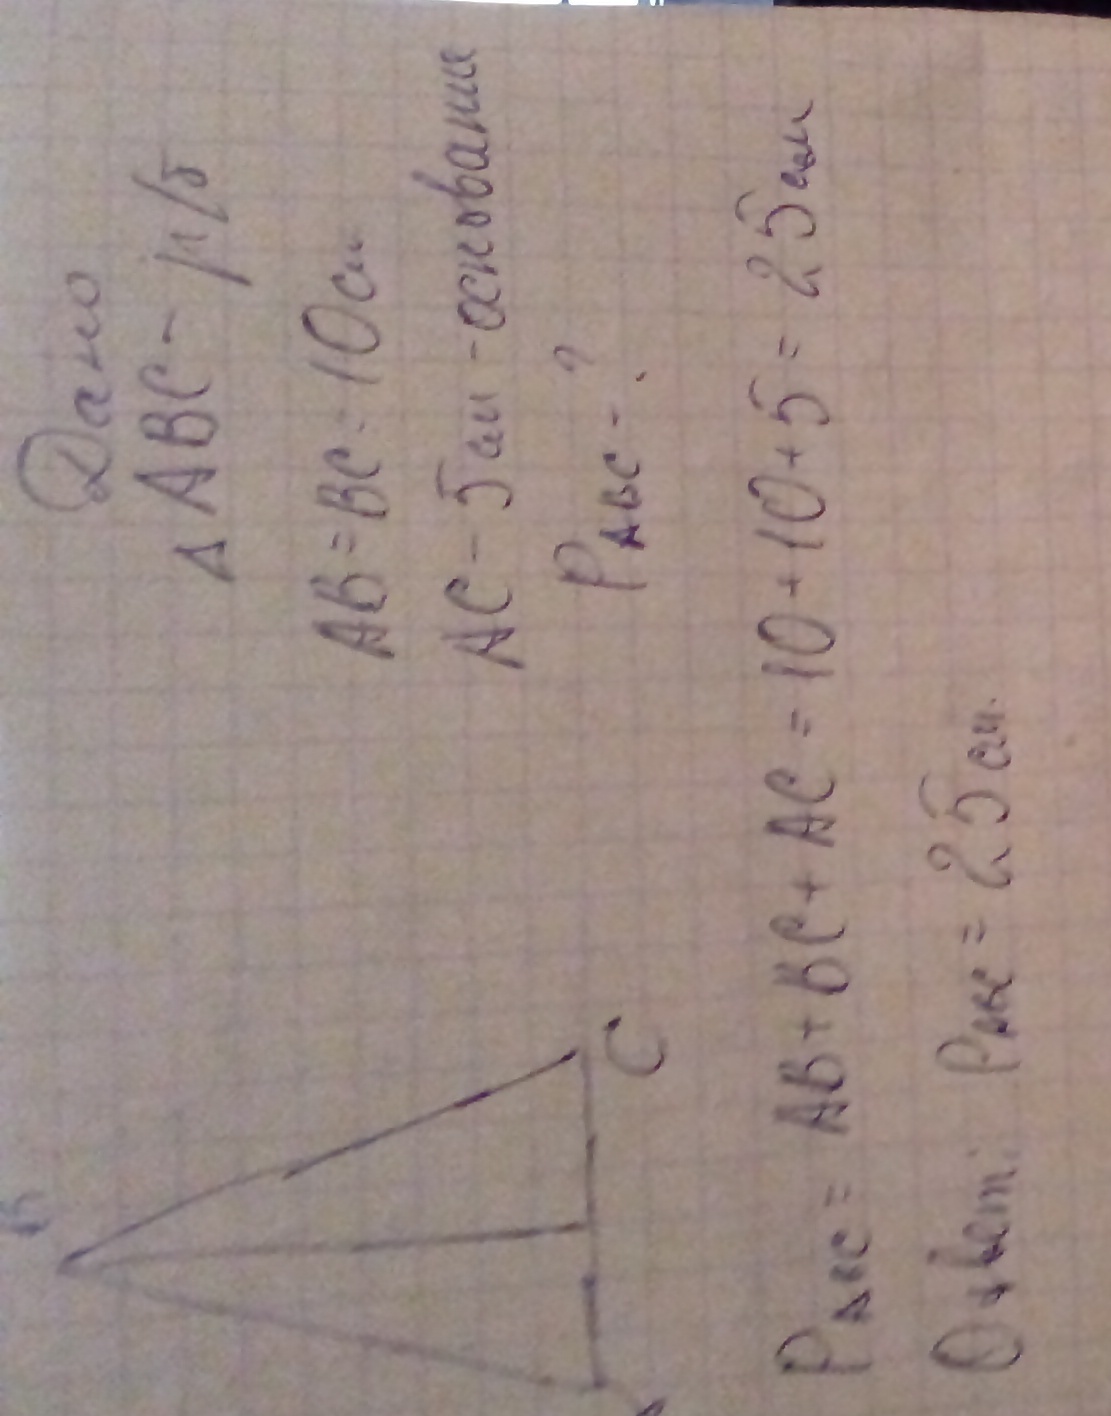 Дано
Δ ABC - р/б
AB = BC = 10 см
AC - 5 см - основание
P ABC - ?
B
C
P ABC = AB + BC + AC = 10 + 10 + 5 = 25 см
Ответ: P ABC = 25 см.